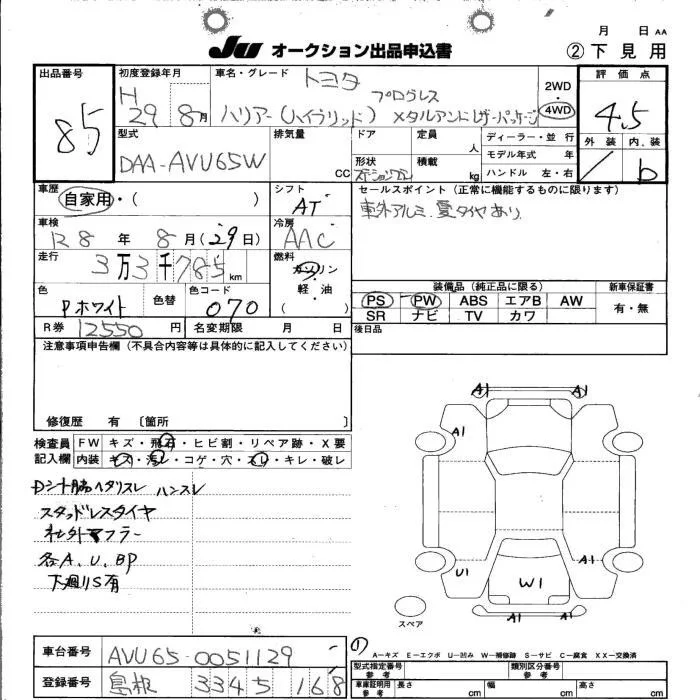 月 日 AA
JU オークション出品申込書 ② 下見用
出品番号
85
初度登録年月
H 29 8月
車名・グレード
トヨタ
プログレス
ハリアー(ハイブリッド) メタルアンドレザーパッケージ
2WD
4WD
評価点
4.5
外装 内装
b
型式
DAA-AVU65W
排気量
CC
ドア
形状
ステーションワゴン
定員
人
積載
kg
ディーラー・並行
モデル年式 年
ハンドル 左・右
車歴
自家用・( )
シフト
AT
セールスポイント(正常に機能するものに限ります)
社外アルミ.夏タイヤあり.
車検
R8 年 8月(29日)
冷房
AAC
走行
3万3千785km
燃料
ガソリン
軽・油
( )
色
Pホワイト
色替
色コード
070
装備品(純正品に限る)
PS PW ABS エアB AW
SR ナビ TV カワ
新車保証書
有・無
R券 12550円
名変期限 月 日
後日品
注意事項申告欄(不具合内容等は具体的に記入してください)
修復歴 有 〔箇所 〕
検査員 FW キズ・飛石・ヒビ割・リペア跡・X要
記入欄 内装 キズ・汚レ・コゲ・穴・スレ・キレ・破レ
Dシート脇ヘタリスレ ハンスレ
スタッドレスタイヤ
社外マフラー
各A、U、BP
下廻りS有
A1 A1
A1
A1
U1
W1
A1 A1
スペア
A-キズ E-エクボ U-凹み W-補修跡 S-サビ C-腐食 XX-交換済
車台番号
AVU65-0051129
登録番号
島根 334 ち 168
型式指定番号
参考
類別区分番号
参考
車庫証明用
参考
長さ cm 幅 cm 高さ cm